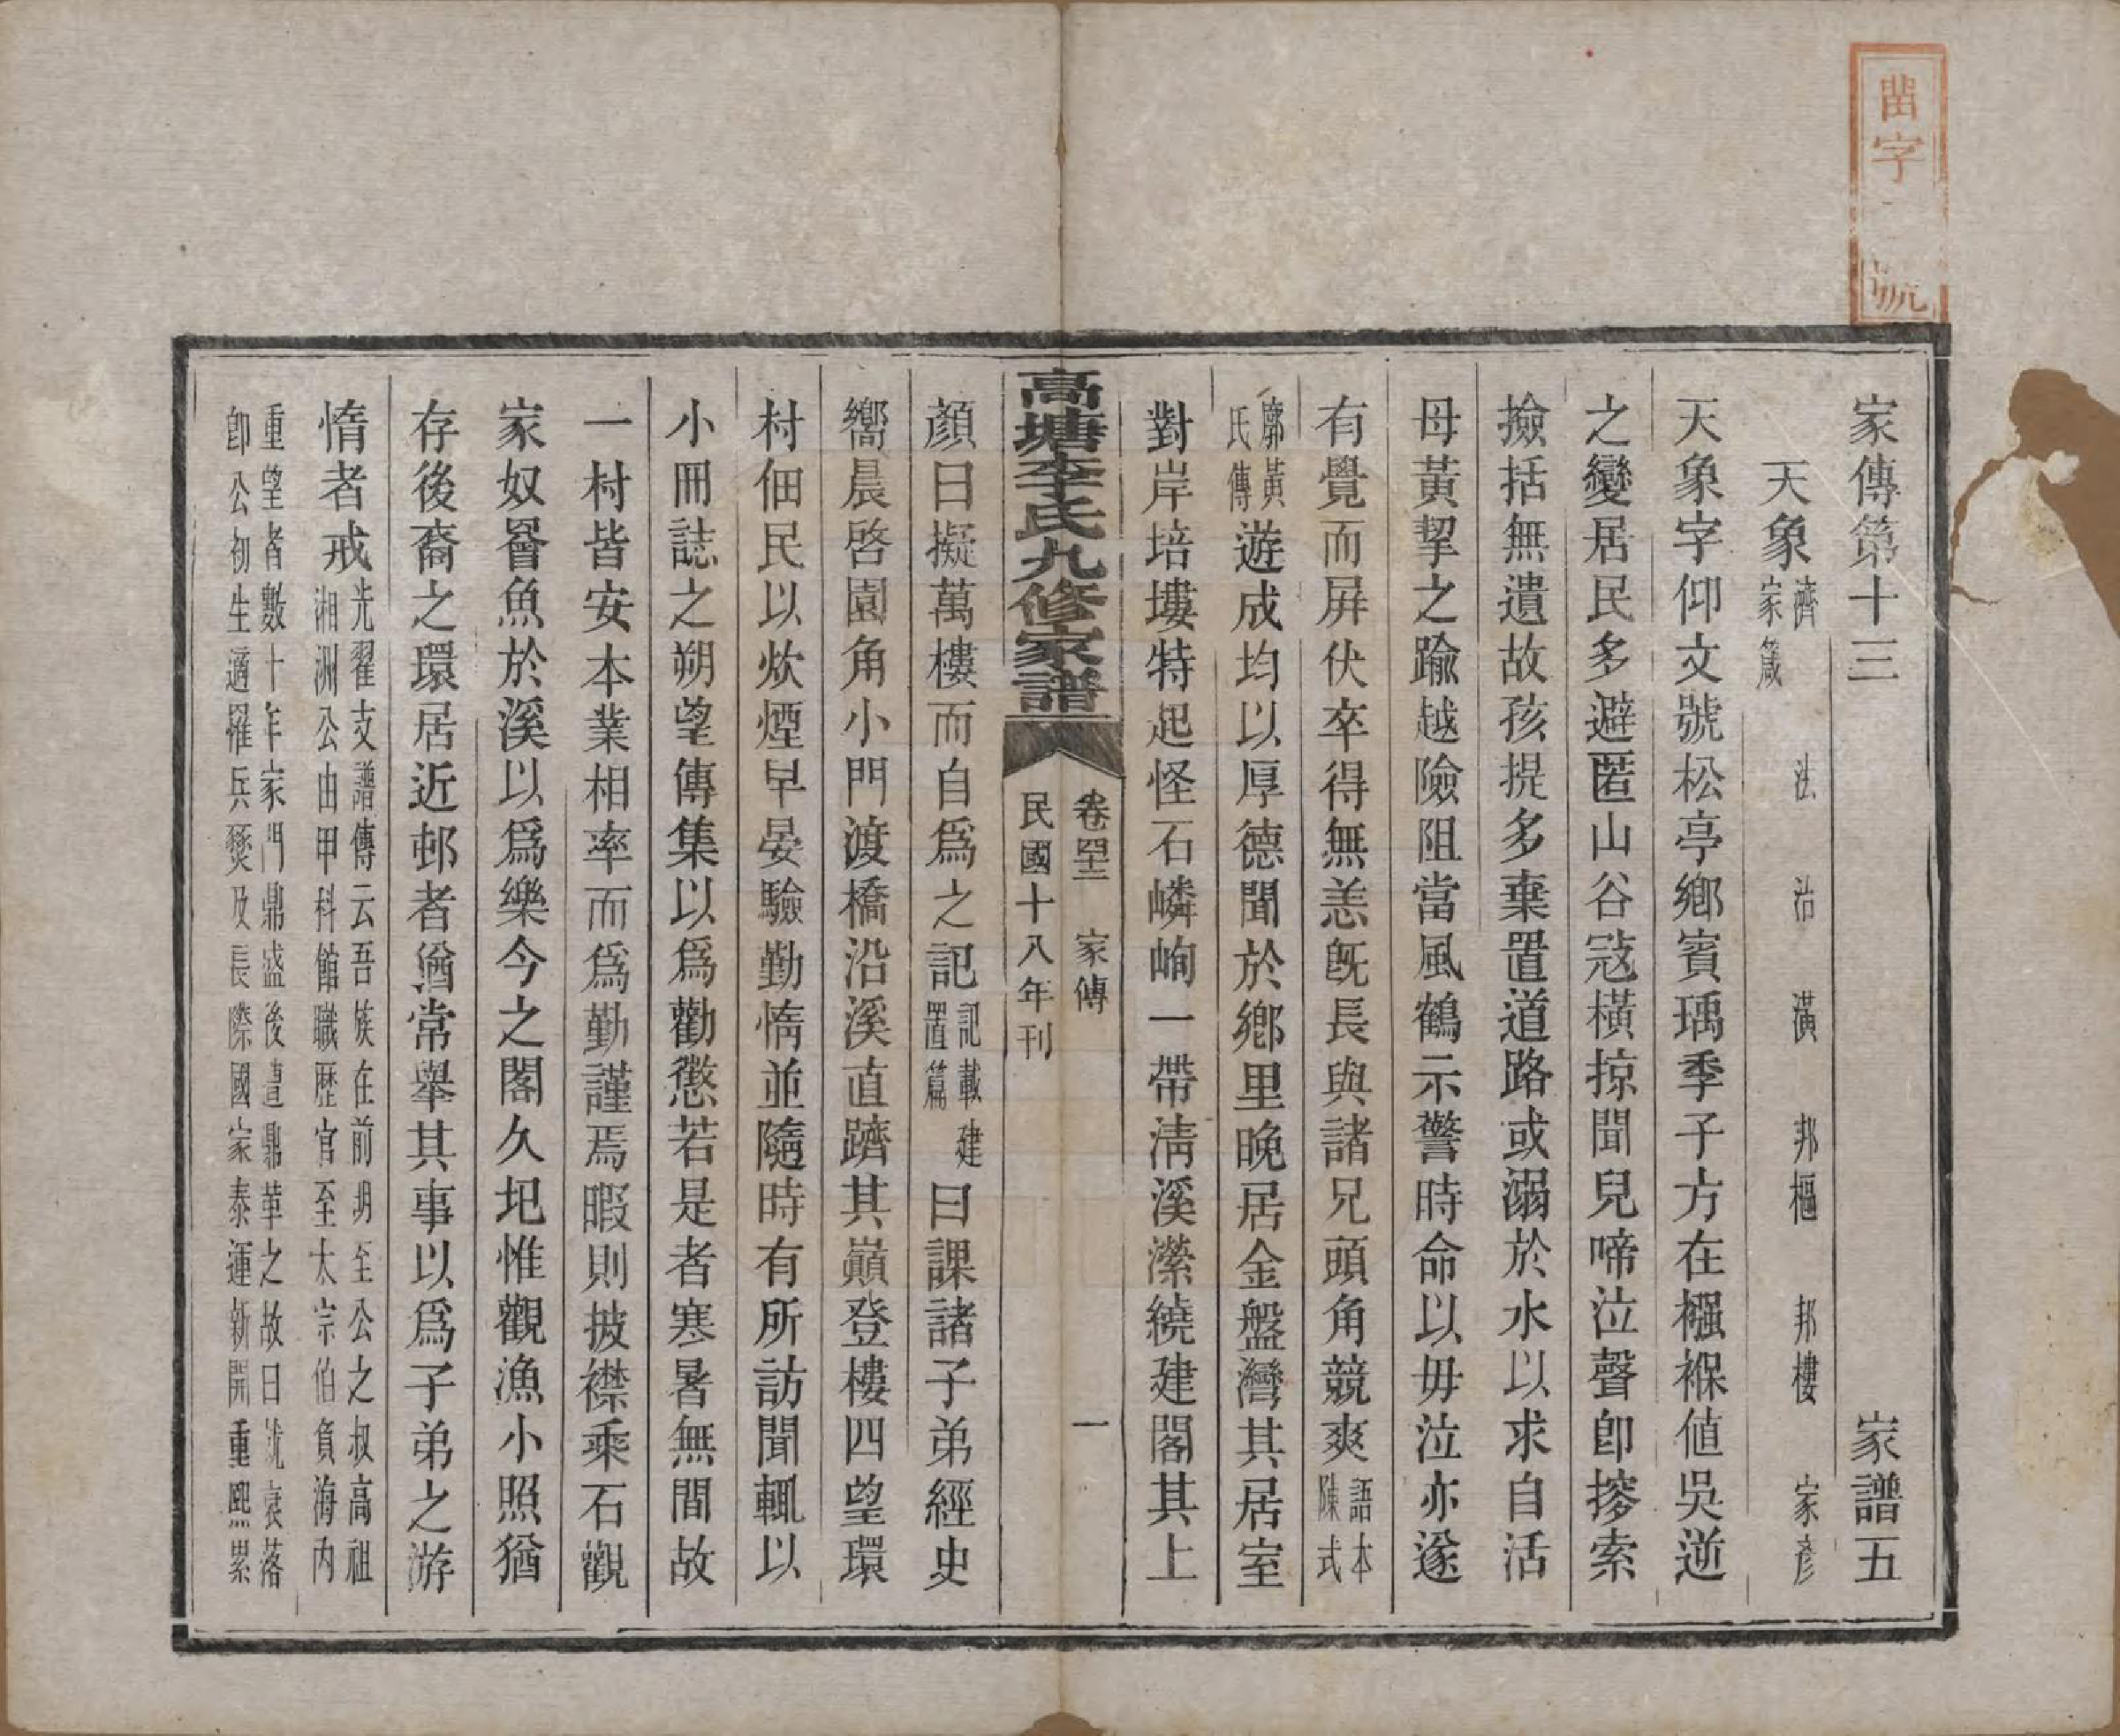 凿字 號
家傳第十三 家譜五
天象 濟 法治 潢 邦樞 邦樓 家彥
家箴
天象字仰文號松亭鄉賓瑀季子方在襁褓值吳逆
之變居民多避匿山谷寇橫掠聞兒啼泣聲卽摉索
撿括無遺故孩提多棄置道路或溺於水以求自活
母黃挈之踰越險阻當風鶴示警時命以毋泣亦遂
有覺而屏伏卒得無恙旣長與諸兄頭角競爽 語本
陳式
廓黃
氏傳 遊成均以厚德聞於鄉里晚居金盤灣其居室
對岸培塿特起怪石嶙峋一帶淸溪瀠繞建閣其上
高塘李氏九修家譜
卷四十三 家傳 一
民國十八年刊
顏曰擬萬樓而自爲之記 記載建
置篇 日課諸子弟經史
嚮晨啓園角小門渡橋沿溪直躋其巔登樓四望環
村佃民以炊煙早晏驗勤惰並隨時有所訪聞輒以
小冊誌之朔望傳集以爲勸懲若是者寒暑無間故
一村皆安本業相率而爲勤謹焉暇則披襟乘石觀
家奴罾魚於溪以爲樂今之閣久圯惟觀漁小照猶
存後裔之環居近邨者猶常舉其事以爲子弟之游
惰者戒 光翟支譜傳云吾族在前明至公之叔高祖
湘洲公由甲科館職歴官至太宗伯負海內
重望者數十年家門鼎盛後遭鼎革之故日就衰落
卽公初生適罹兵燹及長際國家泰運新開重熙累